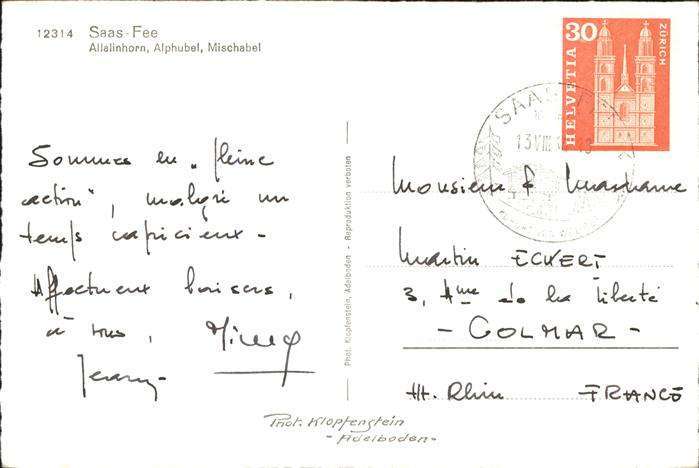 12314 Saas-Fee
Allalinhorn, Alphubel, Mischabel
Sommes en „pleine
action", malgré un
temps capricieux -
Affectueux baisers,
à tous,
Jeanny-
Phot. Klopfenstein, Adelboden - Reproduktion verboten
30
HELVETIA
ZÜRICH
SAAS-
13 VIII
13
Monsieur & Madame
Martin ECKERT
3, Ame de la liberté
- COLMAR -
Ht. Rhin FRANCE
Phot. Klopfenstein
- Adelboden -